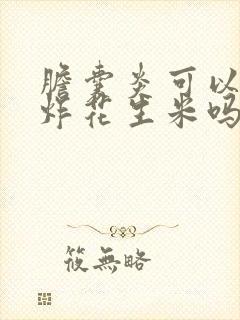 胆囊炎可以
炸花生米吗
筱無略